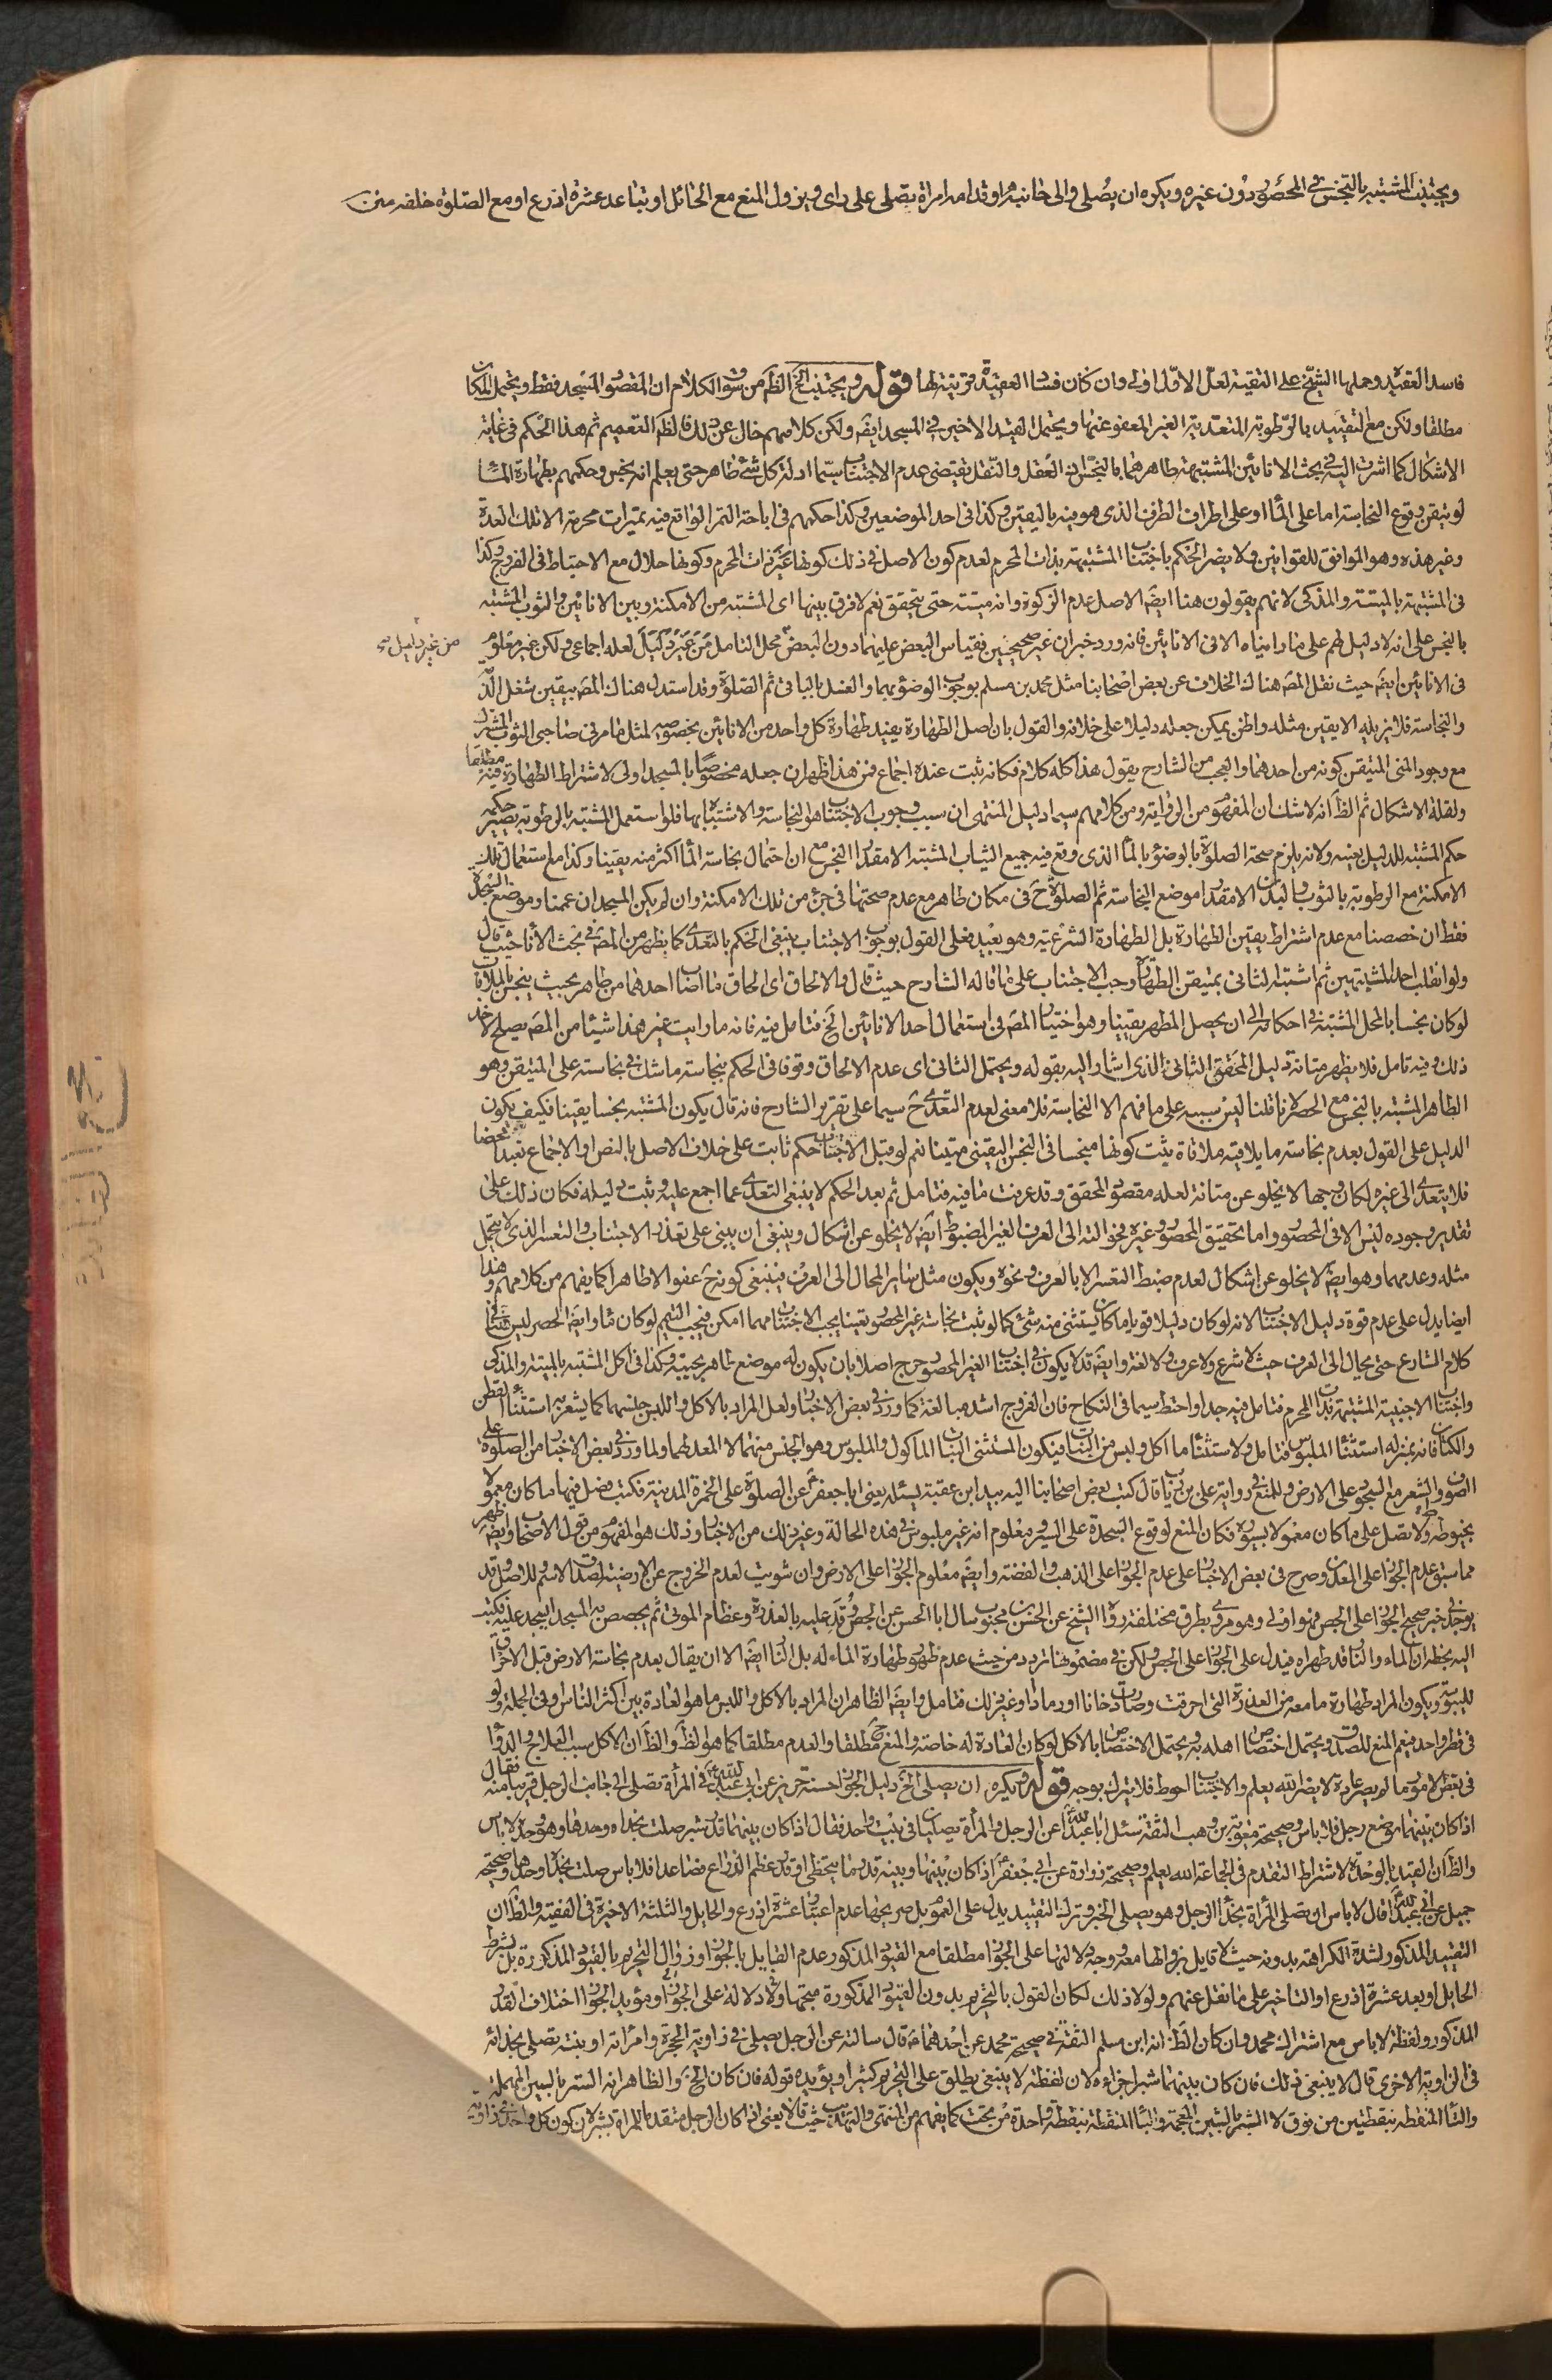 ويجتنب المشتبه بالنجس في المحصور دون غيره ويكره ان يصلي والى جانبه او قدامه امراة تصلي على راى ويزول المنع مع الحائل او تباعد عشرة اذرع او مع الصلوة خلفه متن
فاسد العقيدة وحملها الشيخ على التقية لعل الاول اولى وان كان فساد العقيدة قرينة لها قوله ويجتنب الخ الظ من سوق الكلام ان المقصود المسجد فقط ويحتمل المكان
مطلقا ولكن مع التقييد بالرطوبة المتعدية الغير المعفو عنها ويحتمل القيد الاخير في المسجد ايضه ولكن كلامهم خال عن ذلك فالظ التعميم ثم هذا الحكم في غاية
الاشكال كما اشرت اليه في بحث الانائين المشتبه طاهرهما بالنجس لان العقل والنقل يقتضى عدم الاجتناب سيما ادلة كل شئ طاهر حتى يعلم انه نجس وحكمهم بطهارة الماء
لو تيقن وقوع النجاسة اما على الماء او على اطراف الظرف الذى هو فيه باليقين وكذا في احد الموضعين وكذا حكمهم في اباحة التمر الواقع فيه تميرات محرمة الا تلك العدة
وغير هذه وهو الموافق للقوانين ولا يضر الحكم باجتناب المشتبهة بذات المحرم لعدم كون الاصل في ذلك كونها غير ذات المحرم وكونها حلال مع الاحتياط في الفروج وكذا
في المشتبه بالميتة والمذكى لانهم يقولون هنا ايضه الاصل عدم الزكوة وانه ميتة حتى يتحقق نعم لا فرق بينها اى المشتبه من الامكنة وبين الانائين والثوب المشتبه
بالنجس على انه لا دليل لهم على ما رايناه الا في الانائين فانه ورد خبران غير صحيحين فقياس البعض عليهما دون البعض محل التامل من غير دليل لعله اجماعي ولكن غير معلوم
من غير دليل
في الانائين ايضه حيث نقل المصه هناك الخلاف عن بعض اصحابنا مثل محمد بن مسلم بوجوب الوضوء بهما والغسل بالباقي ثم الصلوة وقد استدل هناك المصه بيقين شغل الذمة
والنجاسة فلا يزيله الا يقين مثله واظن يمكن جعله دليلا على خلافه والقول بان اصل الطهارة يفيد طهارة كل واحد من الانائين بخصوصه لمثل ما مر في صاحبي الثوب المشترك
مع وجود المني المتيقن كونه من احدهما والعجب من الشارح يقول هذا كله كلام فكانه ثبت عنده اجماع فمن هذا ظهر ان جعله مخصوصا بالمسجد اولى لاشتراط الطهارة فيه مطلقا
ولقلة الاشكال ثم الظ انه لا شك ان المفهوم من الرواية ومن كلامهم سيما دليل المنتهى ان سبب وجوب الاجتناب هو النجاسة والاشتباه بها فلو استعمل المشتبه بالرطوبة يصير حكمه
حكم المشتبه للدليل بعينه ولانه يلزم صحة الصلوة بالوضوء بالماء الذى وقع فيه جميع الثياب المشتبه الا مقدار النجس مع ان احتمال نجاسة الماء اكثر منه يقينا وكذا مع استعمال تلك
الامكنة مع الرطوبة بالثوب والبدن الا مقدار موضع النجاسة ثم الصلوة ح في مكان طاهر مع عدم صحتها في جزء من تلك الامكنة وان لم يكن المسجد ان عممنا وموضع السجدة
فقط ان خصصنا مع عدم اشتراط يقين الطهارة بل الطهارة الشرعية وهو بعيد فعلى القول بوجوب الاجتناب ينبغي الحكم بالتعدى كما يظهر من المصه في بحث الاناء حيث قال
ولو انقلب احد المشتبهين ثم اشتبه الثاني بمتيقن الطهارة وجب الاجتناب على ما قاله الشارح حيث قال والالحاق اى الحاق ما اصاب احدهما من طاهر بحيث ينجس بالملاقاة
لو كان نجسا بالمحل المشتبه في احكامه الى ان يحصل المطهر يقينا وهو اختيار المصه في استعمال احد الانائين الخ فتامل فيه فانه ما رايت غير هذا شيئا من المصه يصلح لاخذ
ذلك وفيه تامل فلا يظهر متانة دليل المحقق الثاني الذى اشار اليه بقوله ويحتمل الثاني اى عدم الالحاق وقوفا في الحكم بنجاسة ما شك في نجاسته على المتيقن وهو
الطاهر المشتبه بالنجس مع الحصر لما قلنا ليس سببه على ما فهم الا النجاسة فلا معنى لعدم التعدى ح سيما على تقرير الشارح فانه قال يكون المشتبه نجسا يقينا فكيف يكون
الدليل على القول بعدم نجاسة ما يلاقيه ملاقاة يثبت كونها منجسا في النجس اليقيني متينا نعم لو قيل الاجتناب حكم ثابت على خلاف الاصل بالنص او الاجماع تعبدا محضا
فلا يتعدى الى غيره لكان وجها لا يخلو عن متانة لعله مقصود المحقق وقد عرفت ما فيه فتامل ثم بعد الحكم لا ينبغي التعدى عما اجمع عليه وثبت دليله فكان ذلك على
تقدير وجوده ليس الا في المحصور واما تحقيق المحصور وغيره فحوالته الى العرف الغير المضبوط ايضه لا يخلو عن اشكال وينبغي ان يبنى على تعذر الاجتناب والتعسر الذى لا يتحمل
مثله وعدمهما وهو ايضه لا يخلو عن اشكال لعدم ضبط التعسر الا بالعرف ونحوه ويكون مثل ساير المحال الى العرف فينبغي كونه ح عفوا لا طاهرا كما يفهم من كلامهم وهذا
ايضا يدل على عدم قوة دليل الاجتناب لانه لو كان دليلا قويا ما كان يستثنى منه شئ كما لو ثبت نجاسة غير المحصور يقينا يجب الاجتناب مهما امكن فيجب التيمم لو كان ماء وايضه الحصر ليس في
كلام الشارع حتى يحال الى العرف حيث لا شرع ولا عرف ولا لغة وايضه قد لا يكون في اجتناب الغير المحصور حرج اصلا بان يكون له موضع طاهر بجنبه وكذا في اكل المشتبه بالميتة والمذكى
واجتناب الاجنبية المشتبهة بذات المحرم فتامل فيه جدا واحتط سيما في النكاح فان الفروج اشد مبالغة كما ورد في بعض الاخبار ولعل المراد بالاكل واللبس جنسهما كما يشعر به استثناء القطن
والكتان فانه بمنزلة استثناء الملبوس فتامل ولاستثناء ما اكل ولبس من النبات فيكون المستثنى النبات الماكول والملبوس وهو الجنس منهما لا المعد لهما ولما ورد في بعض الاخبار من الصلوة على
الصوف والشعر مع السجود على الارض وللمنع في رواية علي بن ريان قال كتب بعض اصحابنا اليه بيد ابن عقبة يسئله يعني ابا جعفر عن الصلوة على الخمرة المدنية فكتب صل فيها ما كان معمولا
بخيوطه ولا تصل على ما كان معمولا بسيوره فكان المنع لوقوع السجدة على السير ومعلوم انه غير ملبوس في هذه الحالة وغير ذلك من الاخبار وذلك هو المفهوم من قول الاصحاب وايضه ظهر
مما سبق عدم الجواز على المعدن وصرح في بعض الاخبار على عدم الجواز على الذهب والفضة وايضه معلوم الجواز على الارض وان شويت لعدم الخروج عن الارضية لصدق الاسم للاصل وقد
يوجد في خبر صحيح الجواز على الجص فهو اولى وهو مروى بطرق مختلفة رواه الشيخ عن الحسن بن محبوب سال ابا الحسن عن الجص يوقد عليه بالعذرة وعظام الموتى ثم يجصص به المسجد ايسجد عليه فكتب
اليه بخطه ان الماء والنار قد طهراه فيدل على الجواز على الجص ولكن في مضمونها تردد من حيث عدم ظهور طهارة الماء له بل النار ايضه الا ان يقال بعدم نجاسة الارض قبل الاحراق
لليبوسة ويكون المراد طهارة ما معه من العذرة التي احرقت وصارت دخانا او رمادا وغير ذلك فتامل وايضه الظاهر ان المراد بالاكل واللبس ما هو العادة بين اكثر الناس وفي الجملة ولو
في قطر واحد فيعم المنع للصدق ويحتمل اختصاص اهله به ويحتمل الاختصاص بالاكل لو كان العادة له خاصة والمنع ح مطلقا والعدم مطلقا كما هو الظ والظ ان الاكل سبب العلاج والدواء
في بعض الامور ما لم يصر عادة لا يضر الله يعلم والاجتناب احوط فلا يترك بوجه قوله ويكره ان يصلي الخ دليل الجواز حسنة حريز عن ابي عبد الله في المرأة تصلي الى جانب الرجل قريبا منه فقال
اذا كان بينهما موضع رجل فلا باس وصحيحة معوية بن وهب الثقة سئل ابا عبد الله عن الرجل والمرأة يصليان في بيت واحد فقال اذا كان بينهما قدر شبر صلت بحذاه وحدها وهو وحده لا باس
والظ ان القيد بالوحدة لاشتراط التقدم في الجماعة الله يعلم وصحيحة زرارة عن ابي جعفر اذا كان بينها وبينه قدر ما يتخطى او قدر عظم الذراع فصاعدا فلا باس صلت بحذاه وحدها وصحيحة
جميل عن ابي عبد الله قال لا باس ان تصلي المرأة بحذاء الرجل وهو يصلي الخبر وترك التقييد يدل على العموم بل صريحها عدم اعتبار عشرة اذرع والحايل والثلثة الاخيرة في الفقيه والظ ان
التقييد المذكور لشدة الكراهة بدونه حيث لا قايل بزوالها معه ووجه دلالتها على الجواز مطلقا مع القيود المذكور عدم القايل بالجواز وزوال التحريم بالقيود المذكورة بل بشرط
الحايل او بعد عشرة اذرع او التاخير على ما نقل عنهم ولولا ذلك لكان القول بالتحريم بدون القيود المذكورة متجها ولا دلالة على الجواز او مؤيد الجواز اختلاف القدر
المذكور ولفظة لا باس مع اشتراك محمد وان كان الظ انه ابن مسلم الثقة في صحيحة محمد عن احدهما قال سالته عن الرجل يصلي في زاوية الحجرة وامراته او بنته تصلي بحذائه
في الزاوية الاخرى قال لا ينبغي ذلك فان كان بينهما شبر اجزاءه لان لفظة لا ينبغي يطلق على التحريم كثيرا ويؤيده قوله فان كان الخ والظاهر انه الستر بالسين المهملة
والتاء المنقطة بنقطتين من فوق لا الشبر بالشين المعجمة والباء المنقطة بنقطة واحدة من تحت كما يفهم من المنتهى والتهذيب حيث قالا يعنى اذا كان الرجل متقدما للمراة بشبر لان كون كل واحد في زاوية